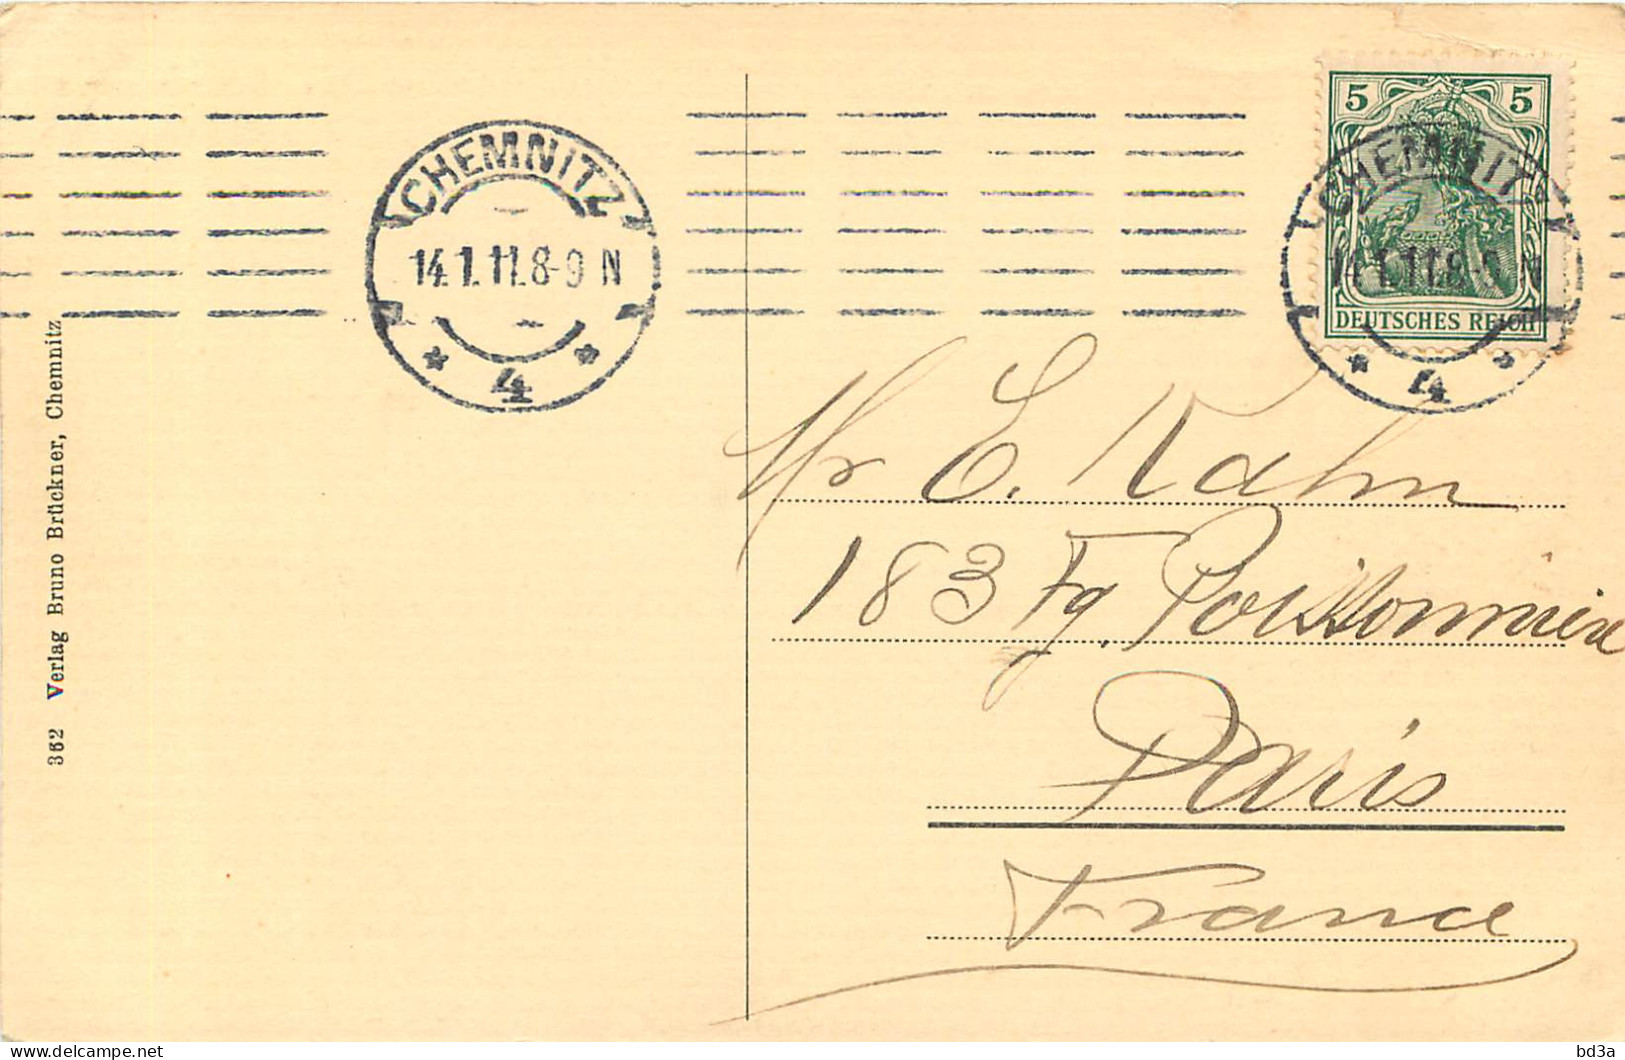 CHEMNITZ
14.1.11.8-9 N
* 4 *
5 5
DEUTSCHES REICH
CHEMNITZ
14.1.11.8-9 N
* 4 *
Mr E. Kahn
183 Fg. Poissonnière
Paris
France
362 Verlag Bruno Brückner, Chemnitz
delcampe.net
bd3a